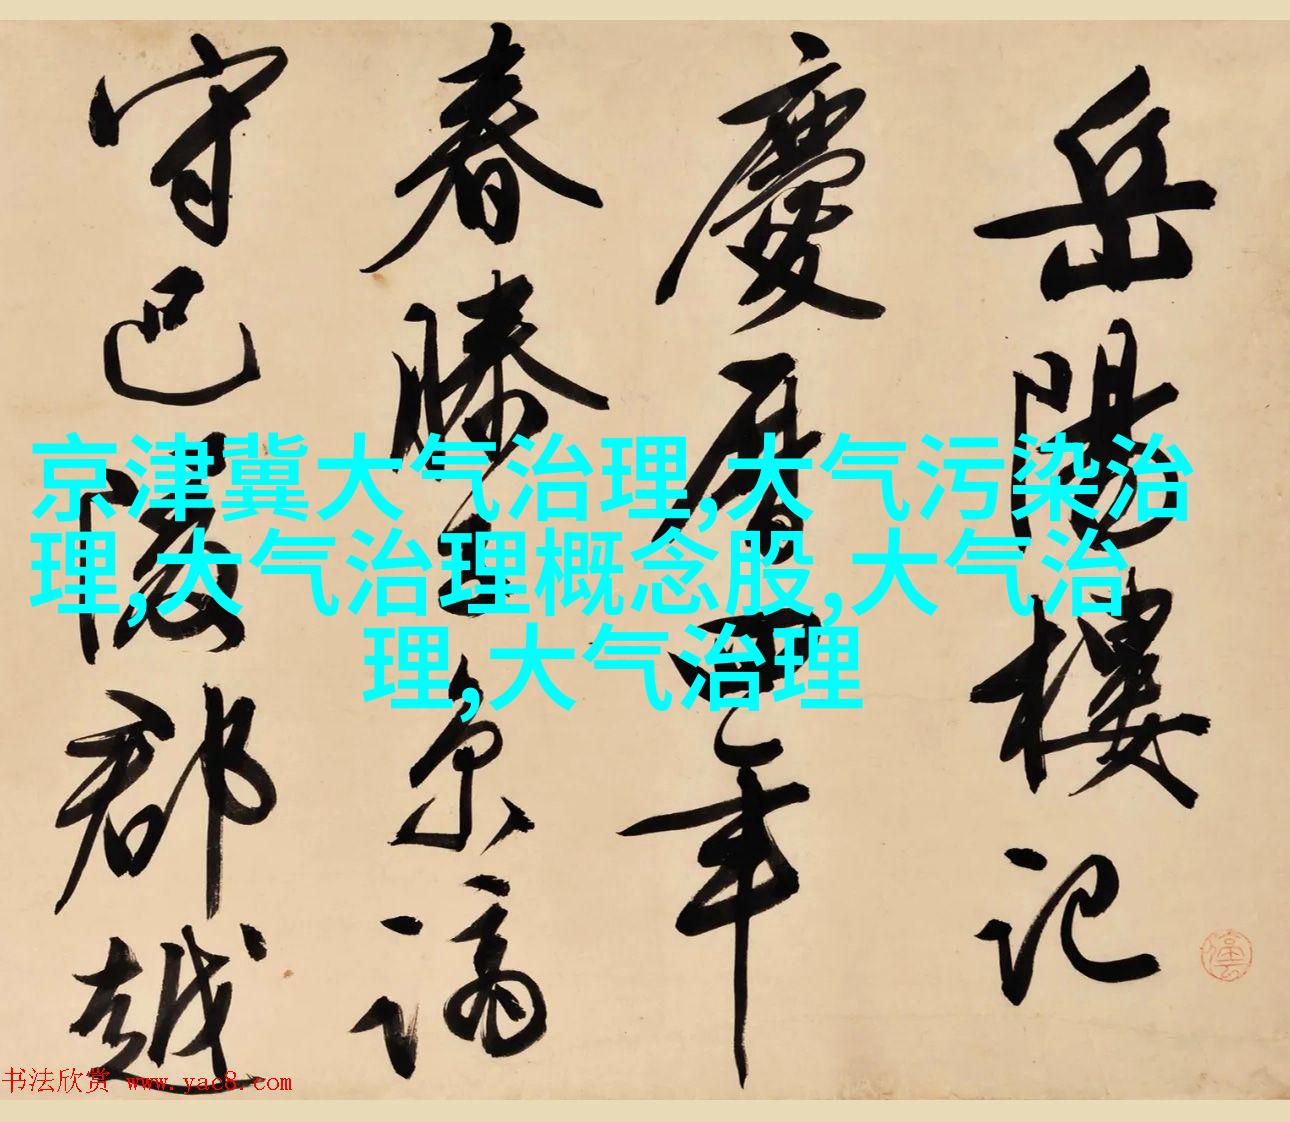 岳陽樓記
慶曆四年
春滕子京謫
守巴陵郡越
京津冀大气治理,大气污染治
理,大气治理概念股,大气治
理,大气治理
书法欣赏 www.yac8.com